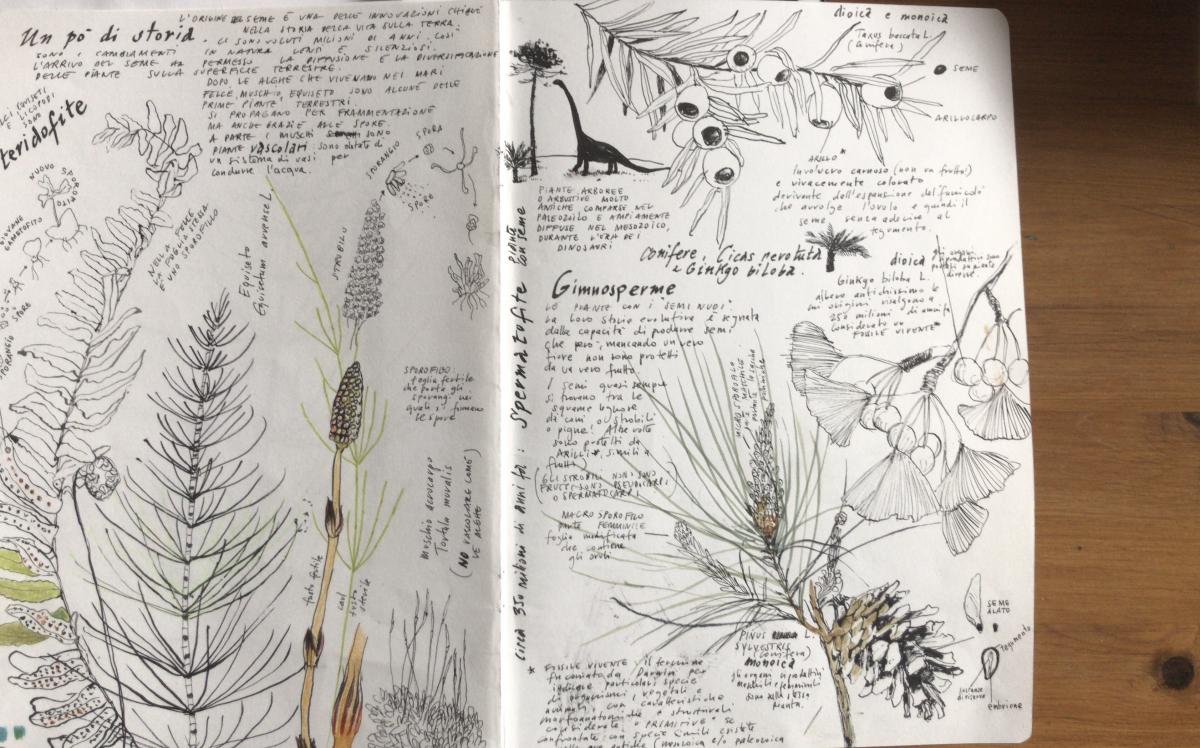 Un pò di storia
L'ORIGINE DEL SEME È UNA DELLE INNOVAZIONI CHIAVE
NELLA STORIA DELLA VITA SULLA TERRA.
CI SONO VOLUTI MILIONI DI ANNI. COSÌ
SONO I CAMBIAMENTI IN NATURA LENTI E SILENZIOSI.
L'ARRIVO DEL SEME HA PERMESSO LA DIFFUSIONE E LA DIVERSIFICAZIONE
DELLE PIANTE SULLA SUPERFICIE TERRESTRE.
DOPO LE ALGHE CHE VIVEVANO NEI MARI
FELCE, MUSCHIO, EQUISETO SONO ALCUNE DELLE
PRIME PIANTE TERRESTRI.
SI PROPAGANO PER FRAMMENTAZIONE
MA ANCHE GRAZIE ALLE SPORE.
A PARTE I MUSCHI SONO
PIANTE vascolari: sono dotate di
un sistema di vasi per
condurre l'acqua.
EQUISETI
E LICOPODI
SONO
teridofite
NUOVO SPOROFITO
GIOVANE
GAMETOFITO
SPORE
SPORANGIO
NELLA FELCE
LA FOGLIA STESSA
È UNO SPOROFILLO
Equiseto
Equisetum arvense L.
STROBILO
SPORANGIO
SPORA
SPORE
SPOROFILLO:
foglia fertile
che porta gli
sporangi nei
quali si formano
le spore
Muschio acrocarpo
Tortula muralis
(NO VASCOLARE COME
LE ALGHE)
fusto fertile
fusto
sterile
Circa 350 milioni di anni fa: Spermatofite
Piante
con seme
dioica e monoica
Taxus baccata L.
(Conifera)
SEME
ARILLOCARPO
ARILLO*
Involucro carnoso (non un frutto!)
e vivacemente colorato
derivante dall'espansione del funicolo
che avvolge l'ovulo e quindi il
seme senza aderire al
tegumento.
PIANTE ARBOREE
O ARBUSTIVE MOLTO
ANTICHE COMPARSE NEL
PALEOZOICO E AMPIAMENTE
DIFFUSE NEL MESOZOICO,
DURANTE L'ERA DEI
DINOSAURI
Conifere, Cicas revoluta
e Ginkgo biloba.
dioica
gli organi
riproduttivi sono
portati su piante
diverse.
Ginkgo biloba L.
albero antichissimo le
cui origini risalgono a
250 milioni di anni fa
considerato un
FOSSILE VIVENTE*
Gimnosperme
LE PIANTE CON I "SEMI NUDI"
La loro storia evolutiva è segnata
dalla capacità di produrre semi
che però, mancando un vero
fiore non sono protetti
da un vero frutto.
I semi quasi sempre
si trovano tra le
squame legnose
di coni o strobili
o pigne! Altre volte
sono protetti da
ARILLI*, simili a
frutti
(GLI STROBILI NON SONO
FRUTTI SONO PSEUDOCARPI)
O SPERMATOCARPI
MICROSPOROFILLO
parte MASCHILE
MACROSPOROFILLO
PARTE FEMMINILE
foglia modificata
che contiene
gli ovuli
PINUS L.
SYLVESTRIS
(conifera)
Monoica
gli organi riproduttivi
maschili e femminili
sono sulla stessa
pianta.
SEME
ALATO
Tegumento
Sostanze
di riserva
embrione
* FOSSILE VIVENTE: il termine
fu coniato da Darwin per
indicare particolari specie
di organismi vegetali e
animali, con caratteristiche
morfoanatomiche o strutturali
considerate "PRIMITIVE" se
confrontate con specie simili esistite
(mesozoica e/o paleozoica